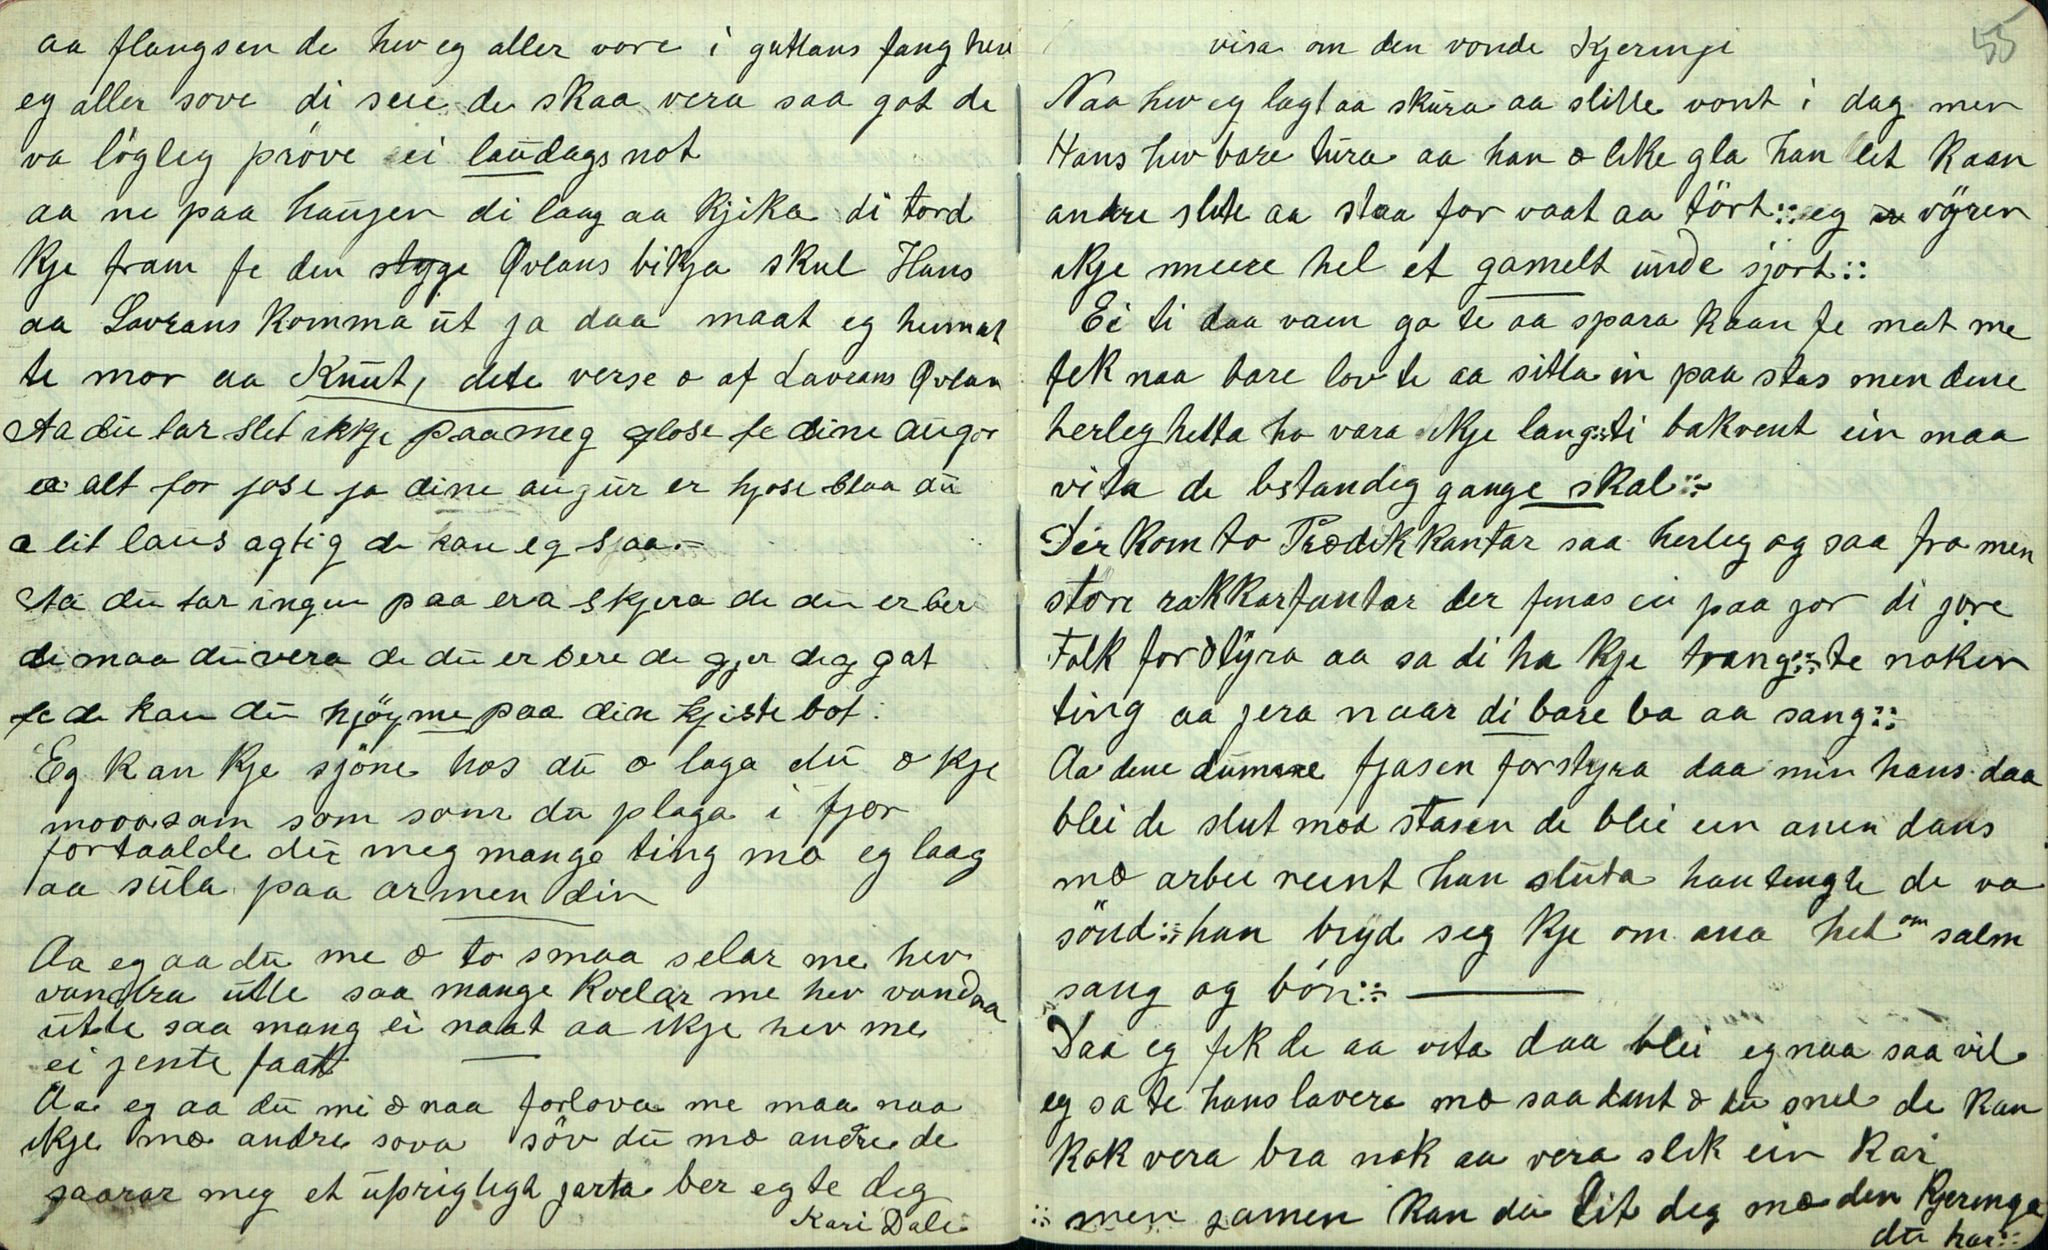 aa flangsen de hev eg aller vore i guttans fang hev
eg aller sove di seie de skaa vera saa got de
va lögleg pröve ei laudags not
aa ne paa haugen di laag aa kjika di tord
kje fram fe den stygge Qvlans bikja skul Hans
aa Lavrans komma ut ja daa maat eg heimat
te mor aa Knut, dete verse æ af Lavrans Qvlan
Aa du tar slet ikkje paa meg glose fe dine augor
æ alt for jose ja dine augur er hjose blaa du
æ lit laus agtig de kan eg sjaa.-
Aa du tar ingen paa era skjera de du er ber
de maa du vera de du er bere de gjer deg got
fe de kan du hjöyme paa din kjiste bot.
Eg kan kje sjöne hos du æ laga du æ kje
moro sam som som du plaga i fjor
fortaalde du meg mange ting mæ eg laag
aa sula paa armen din
Aa eg aa du me æ to smaa selar me hev
vandra utte saa mange kvelar me hev vandra
utte saa mang ei naat aa ikje hev me
ei jente faat
Aa eg aa du mi æ naa forlova me maa naa
ikje mæ andre sova söv du mæ andre de
saarar meg et uprigtigt jarta ber eg te deg
Kari Dale
55
visa om den vonde Kjeringi
Naa hev eg lagt aa skura aa slitte vont i dag men
Hans hev bare tura aa han æ like gla han let kaan
andre slite aa staa for vaat aa tört :: eg vören
ikje meere hel et gamelt unde sjört ::
Ei ti daa vaen ga te aa spara kaan fe mat me
fek naa bare lov te aa sitta in paa stas men dene
herleghetta ho vara ikje lang :: ti bakvent ein maa
vita de bstandig gange skal ::
Der kom to Prædikkantar saa herleg og saa fra men
störe rakkarfantar der finas ei paa jor di jore
Folk fordtyra aa sa di ha kje trang :: te noken
ting aa jera naar di bare ba aa sang ::
Aa dene dumme fjasen forstyra daa min hans daa
blei de slut mæ stasen de blei ein anen dans
mæ arbei reint han sluta han tengte de va
sönd :: han bryd seg kje om ana hel om salm
sang og bön ::
Daa eg fek de aa vita daa blei eg naa saa vil
eg sa te hans lavera mæ saa dant æ du snel de kan
kak vera bra nok aa vera slik ein kar
:: men samen kan du lit deg mæ den kjeringa
du har ::